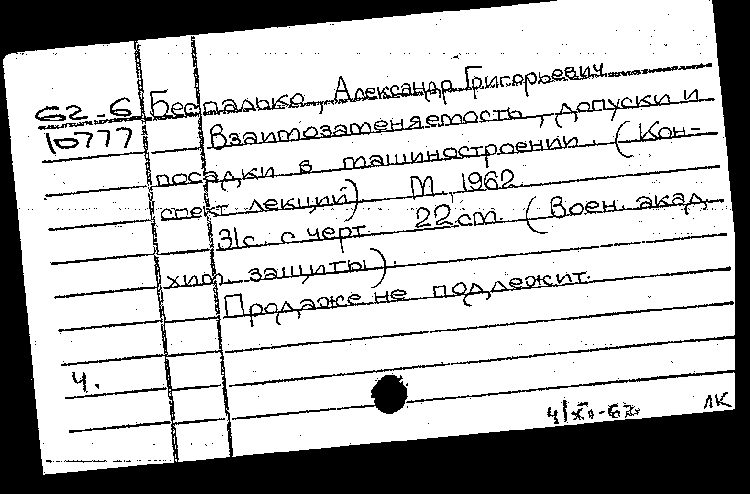 62-6 Беспалько, Александр Григорьевич
10777 Взаимозаменяемость, допуски и
посадки в машиностроении. (Кон-
спект лекций) М., 1962.
31с. с черт. 22см. (Воен. акад.
хим. защиты).
Продаже не подлежит.
4.
4/XI-62 ЛК